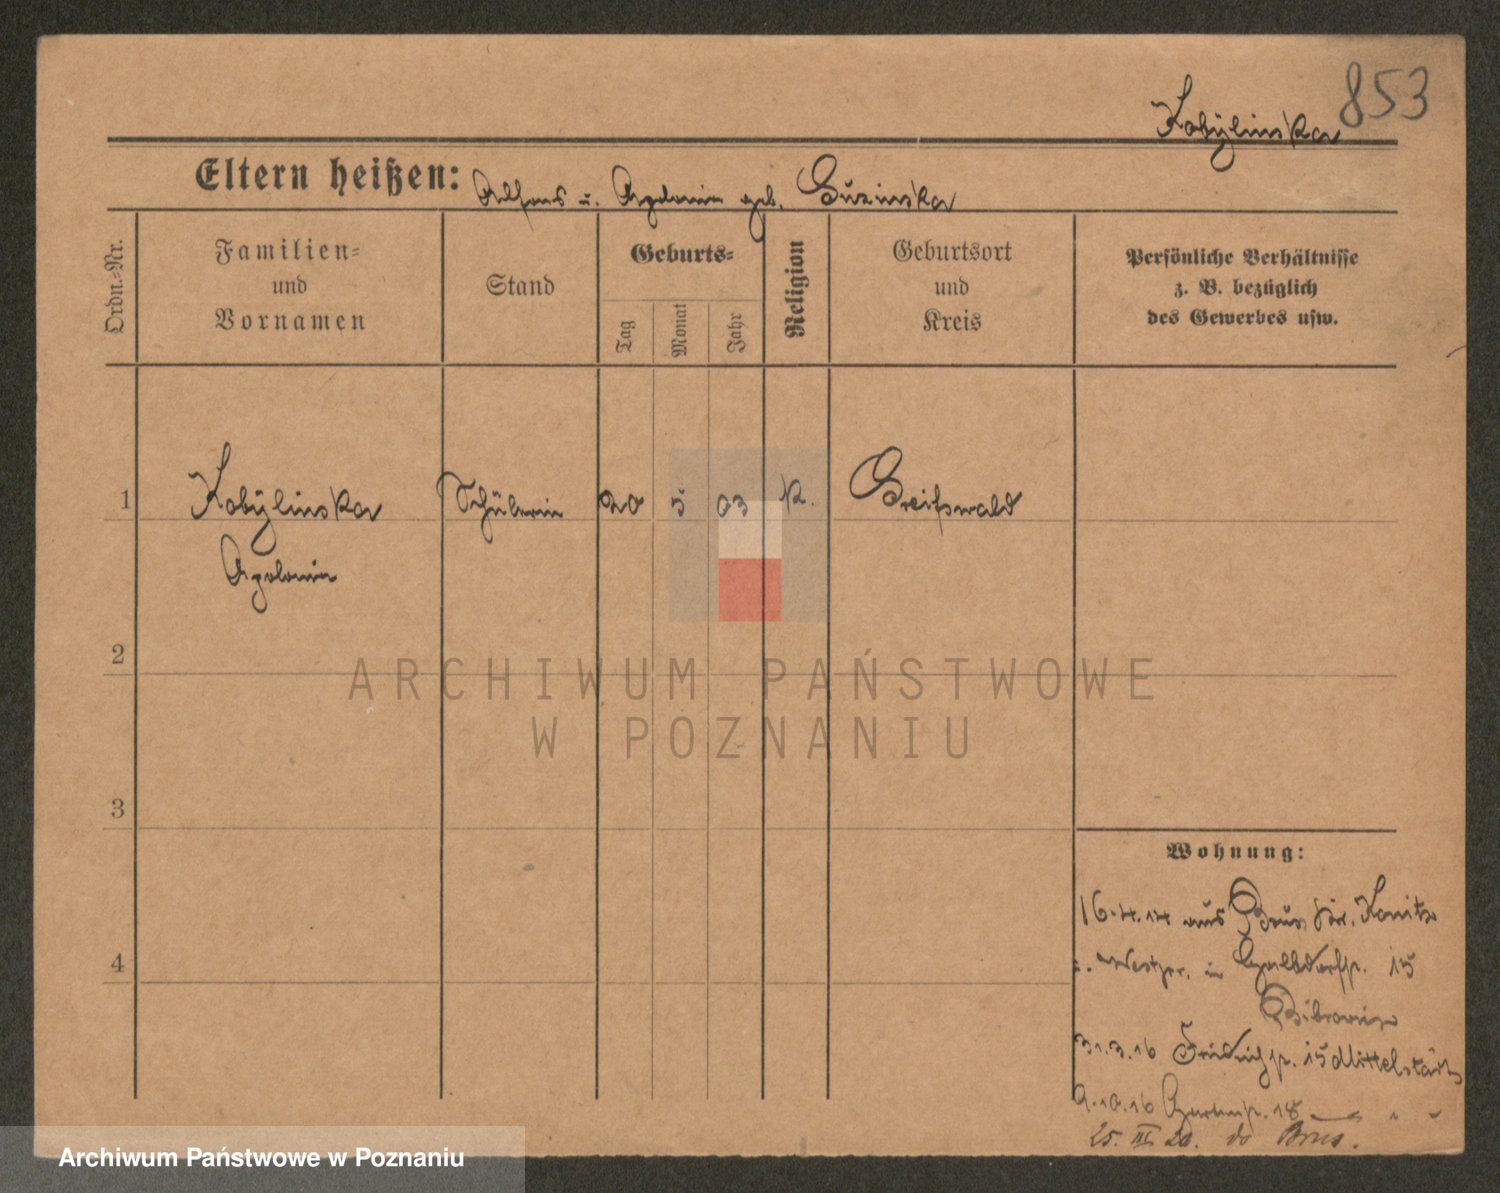 853
Kobylinska
Eltern heißen: Alfons u. Apolonia geb. Guzinska
Ordn.-Nr.
Familien-
und
Vornamen
Stand
Geburts-
Tag
Monat
Jahr
Religion
Geburtsort
und
Kreis
Persönliche Verhältnisse
z. B. bezüglich
des Gewerbes usw.
1
Kobylinska Schülerin 20 5 03 K. Greifswald
Apolonia
2
3
4
ARCHIWUM PAŃSTWOWE
W POZNANIU
Wohnung:
16.4.14 aus Brus Kr. Konitz
i. Westpr. in Halbdorfstr. 15
31.3.16 15
9.10.16 Gartenstr. 18
25. III 20. do Brus.
Archiwum Państwowe w Poznaniu